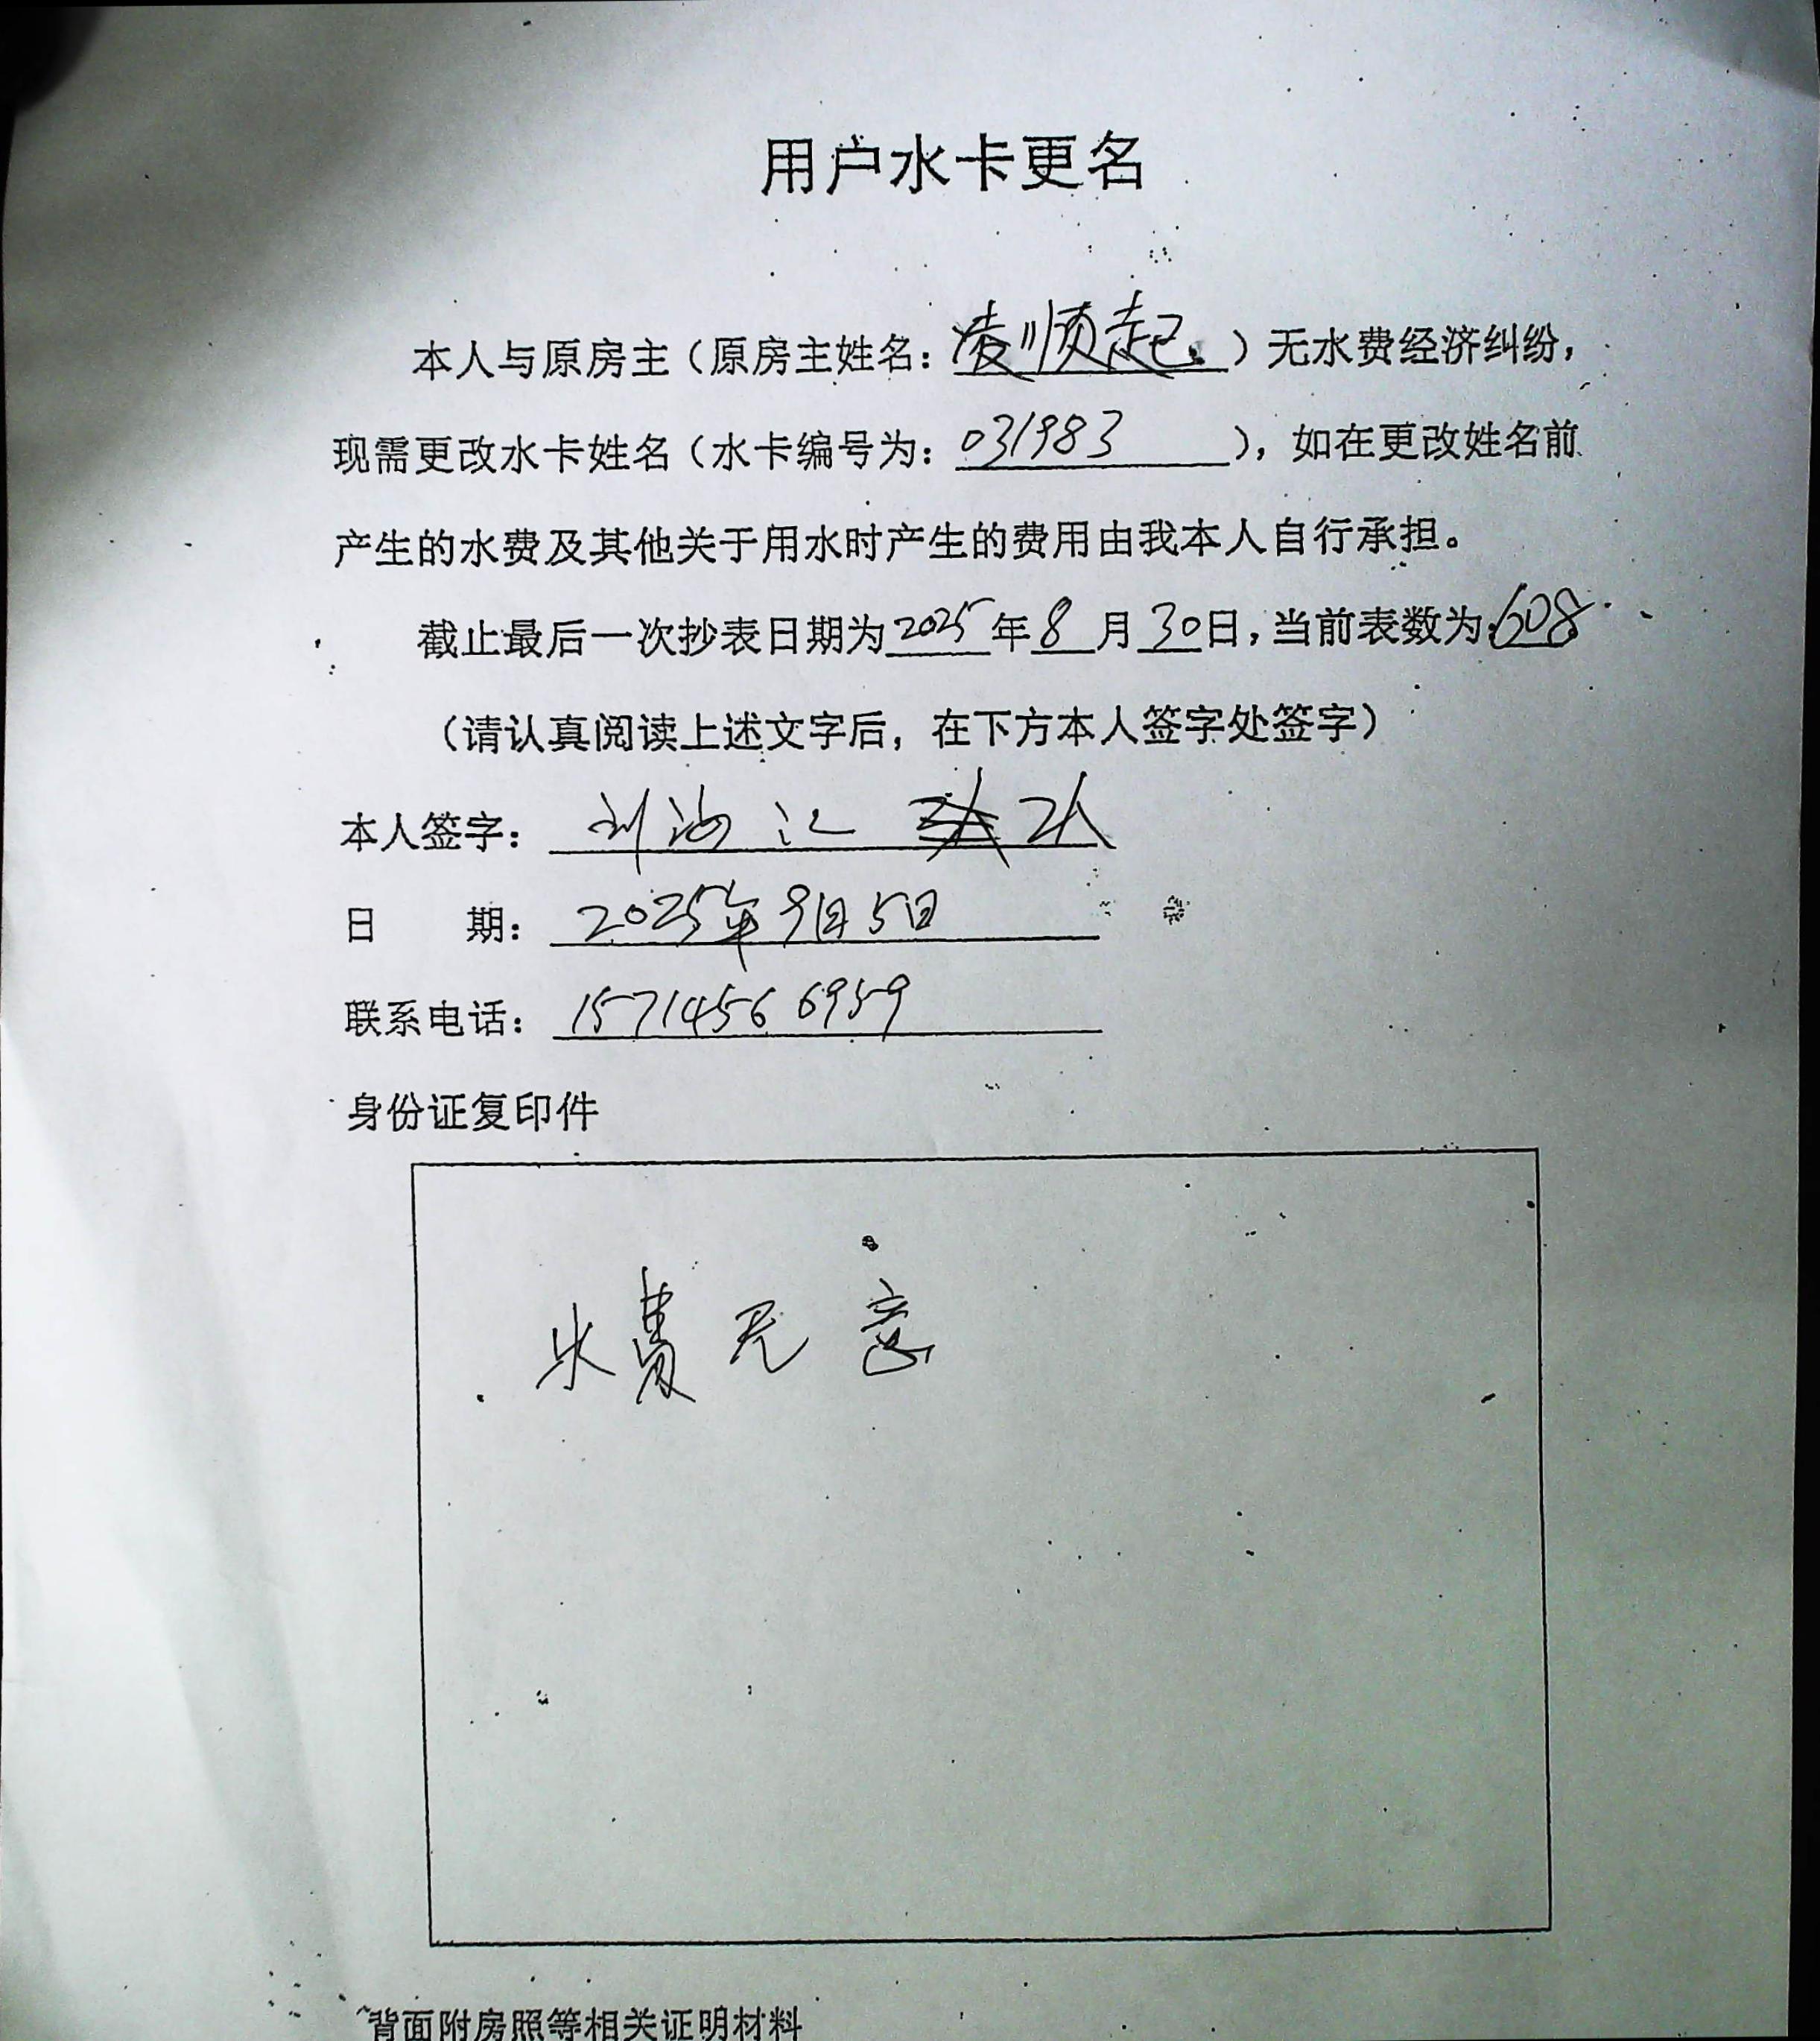 用户水卡更名
本人与原房主（原房主姓名：凌顺起）无水费经济纠纷，
现需更改水卡姓名（水卡编号为：031983），如在更改姓名前
产生的水费及其他关于用水时产生的费用由我本人自行承担。
截止最后一次抄表日期为2025年8月30日，当前表数为608
（请认真阅读上述文字后，在下方本人签字处签字）
本人签字：刘海江
日　　期：2025年9月5日
联系电话：15714566959
身份证复印件
水费无
背面附房照等相关证明材料